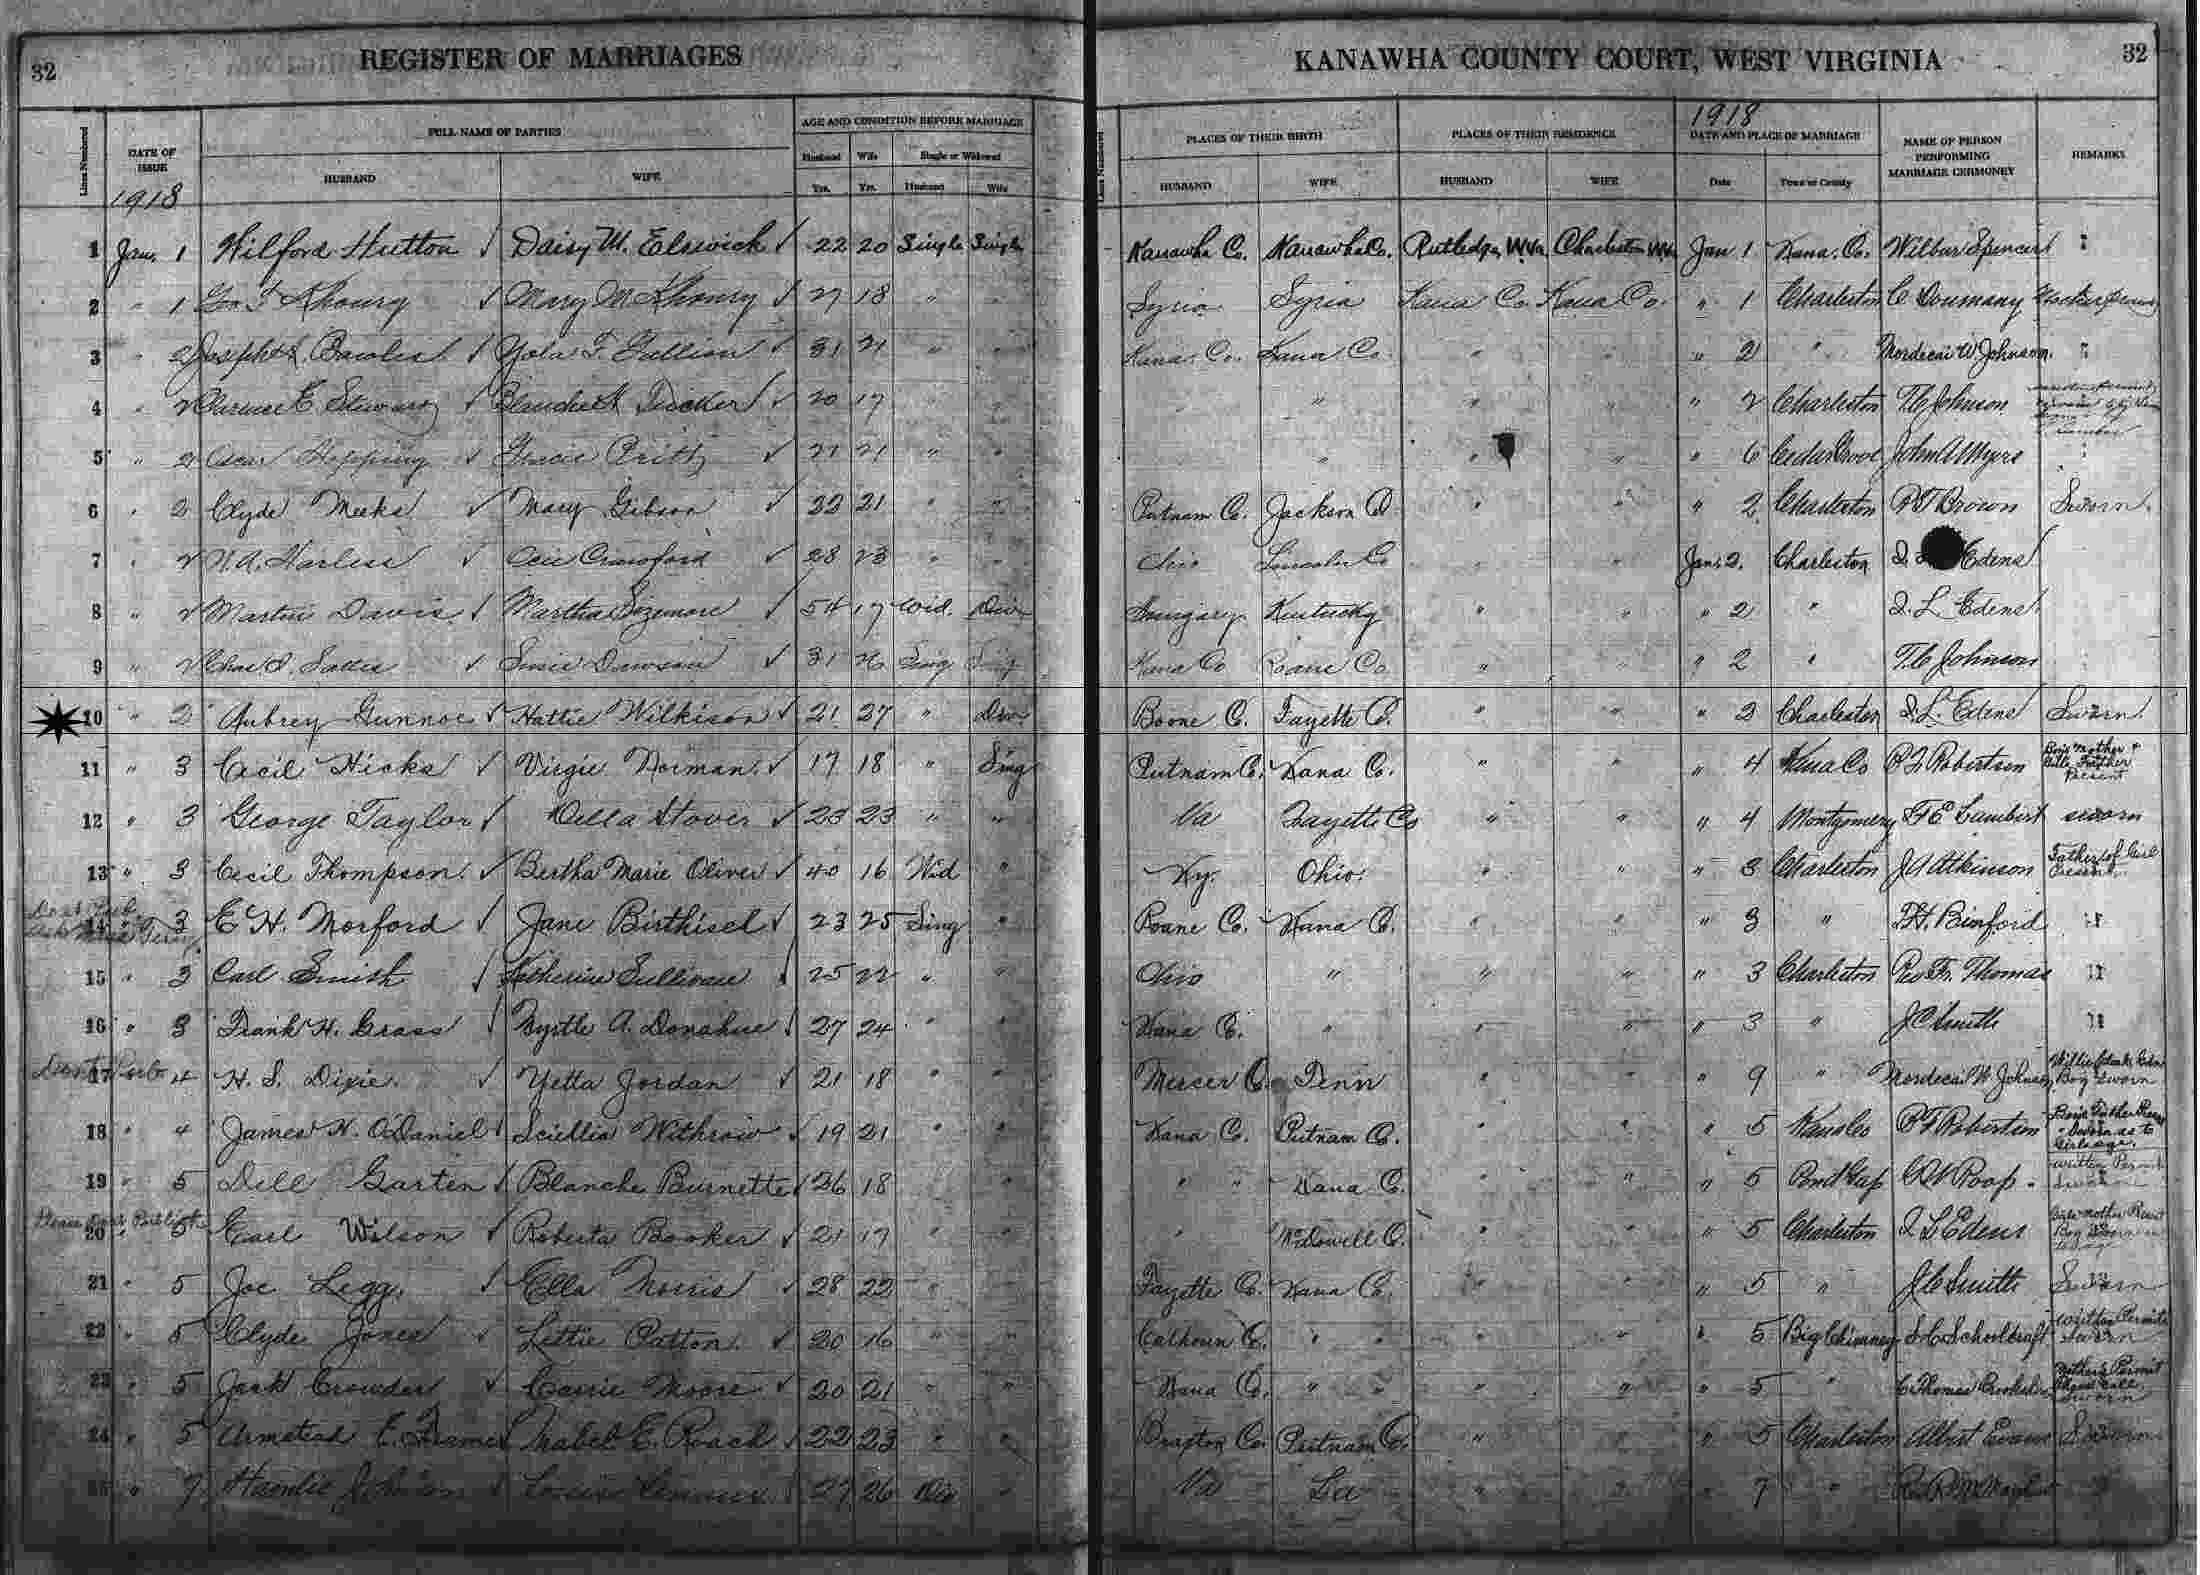 32 REGISTER OF MARRIAGES KANAWHA COUNTY COURT, WEST VIRGINIA 32
Lines Numbered DATE OF ISSUE FULL NAME OF PARTIES AGE AND CONDITION BEFORE MARRIAGE Lines Numbered PLACES OF THEIR BIRTH PLACES OF THEIR RESIDENCE 1918 DATE AND PLACE OF MARRIAGE NAME OF PERSON PERFORMING MARRIAGE CERMONEY REMARKS
HUSBAND WIFE Husband Wife Single or Widowed HUSBAND WIFE HUSBAND WIFE Date Town or County
1918 Yrs. Yrs. Husband Wife
1 Jan. 1 Wilford Hutton √ Daisy M. Elswick √ 22 20 Single Single Kanawha Co. Kanawha Co. Rutledge, W.Va. Charleston W.Va. Jan 1 Kana. Co. Wilbur Spencer "
2 " 1 Geo F Khoury √ Mary M Khoury √ 27 18 " " Syria Syria Kana Co. Kana Co. " 1 Charleston C Doumany
3 " 2 Joseph Bowles √ Yola F. Gallion √ 31 21 " " Kana. Co. Kana Co. " " " 2 " Mordecai W. Johnson "
4 " 2 Clarence E. Stewart √ Blanche H Tucker √ 20 17 " " " " " " 2 Charleston T.C. Johnson
5 " 2 Oscar Hopping √ Gracie Pritt √ 21 21 " " " " " " 6 Cedar Grove John A Myers "
6 " 2 Clyde Meeks √ Mary Gibson √ 22 21 " " Putnam Co. Jackson Co " " " 2 Charleston P.T. Brown Sworn.
7 " 2 N. A. Harless √ Ocie Crawford √ 28 23 " " Ohio Lincoln Co " " Jan. 2. Charleston Edens
8 " 2 Martin Davis √ Martha Sizemore √ 54 17 Wid. Div Hungary Kentucky " " " 2 " I. L. Edens
9 " 2 Chas. Susie Dawson √ 31 26 Sing Sing Kana Co Roane Co " " " 2 " T.C. Johnson
10 " 2 Aubrey Gunnoe √ Hattie Wilkison √ 21 27 " Div Boone Co. Fayette Co. " " " 2 Charleston I. L. Edens Sworn.
11 " 3 Cecil Hicks √ Virgie Norman √ 17 18 " Sing Putnam Co. Kana Co. " " " 4 Kana Co P. F. Robertson Boys Mother & Girls Father Present
12 " 3 George Taylor √ Della Stover √ 23 23 " " Va Fayette Co " " " 4 Montgomery F E Lambert sworn
13 " 3 Cecil Thompson √ Bertha Marie Oliver √ 40 16 Wid " Ky. Ohio. " " " 3 Charleston J A Atkinson Father of Girl Present
Do not Pub.
14 " 3 E. H. Morford √ Jane Birthisel √ 23 25 Sing " Roane Co. Kana Co. " " " 3 " T.H. Binford "
15 " 3 Carl Smith √ Katherine Sullivan √ 25 22 " " Ohio " " " " 3 Charleston Rev Fr. Thomas "
16 " 3 Frank H. Grass √ Myrtle A. Donahue √ 27 24 " " Kana Co. " " " " 3 " J C Smith "
Dont Pub
17 " 4 H. S. Dixie √ Yetta Jordan √ 21 18 " " Mercer Co. Tenn " " " 9 " Mordecai W Johnson Boy Sworn
18 " 4 James H. O'Daniel √ Sciellia Withrow √ 19 21 " " Kana Co. Putnam Co. " " " 5 Kana Co P F Robertson Boys Father Present Sworn as to Girls age.
19 " 5 Dell Garten √ Blanche Burnette √ 26 18 " " " " Kana Co. " " " 5 Pond Gap Roop Written Permit Sworn
Please Dont Publish
20 " 5 Earl Wilson √ Roberta Booker √ 21 17 " " " McDowell Co. " " " 5 Charleston I L Edens Girls mother Present Boy Sworn
21 " 5 Joe Legg. √ Ella Morris √ 28 22 " " Fayette Co. Kana Co. " " " 5 " J C Smith Sworn
22 " 5 Clyde Jones √ Lettie Patton √ 20 16 " " Calhoun Co. " " " " " 5 Big Chimney S. C. Schoolcraft Written Permit Sworn
23 " 5 Jack Crowder √ Carrie Moore √ 20 21 " " Kana Co. " " " " " 5 " Thomas Mother's Permit Sworn
24 " 5 Armstead E. Frame √ Mabel E. Roach √ 22 23 " " Braxton Co. Putnam Co. " " " 5 Charleston Albert Evans Sworn
25 " 7 Johnson √ √ 27 26 Div " Va La " " " 7 "